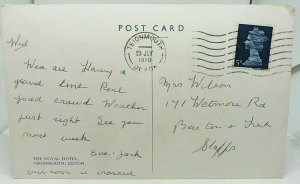 POST CARD
TEIGNMOUTH
23 JLY
1970
DEVON
5D
Noel
Wea are Having a
grand time Real
good crowd Weather
just right See you
next week
Eve & Jack
is crossed
Mrs Wilson
171 Wetmore Rd
Burton on Trent
Staffs
THE ROYAL HOTEL,
TEIGNMOUTH, DEVON.